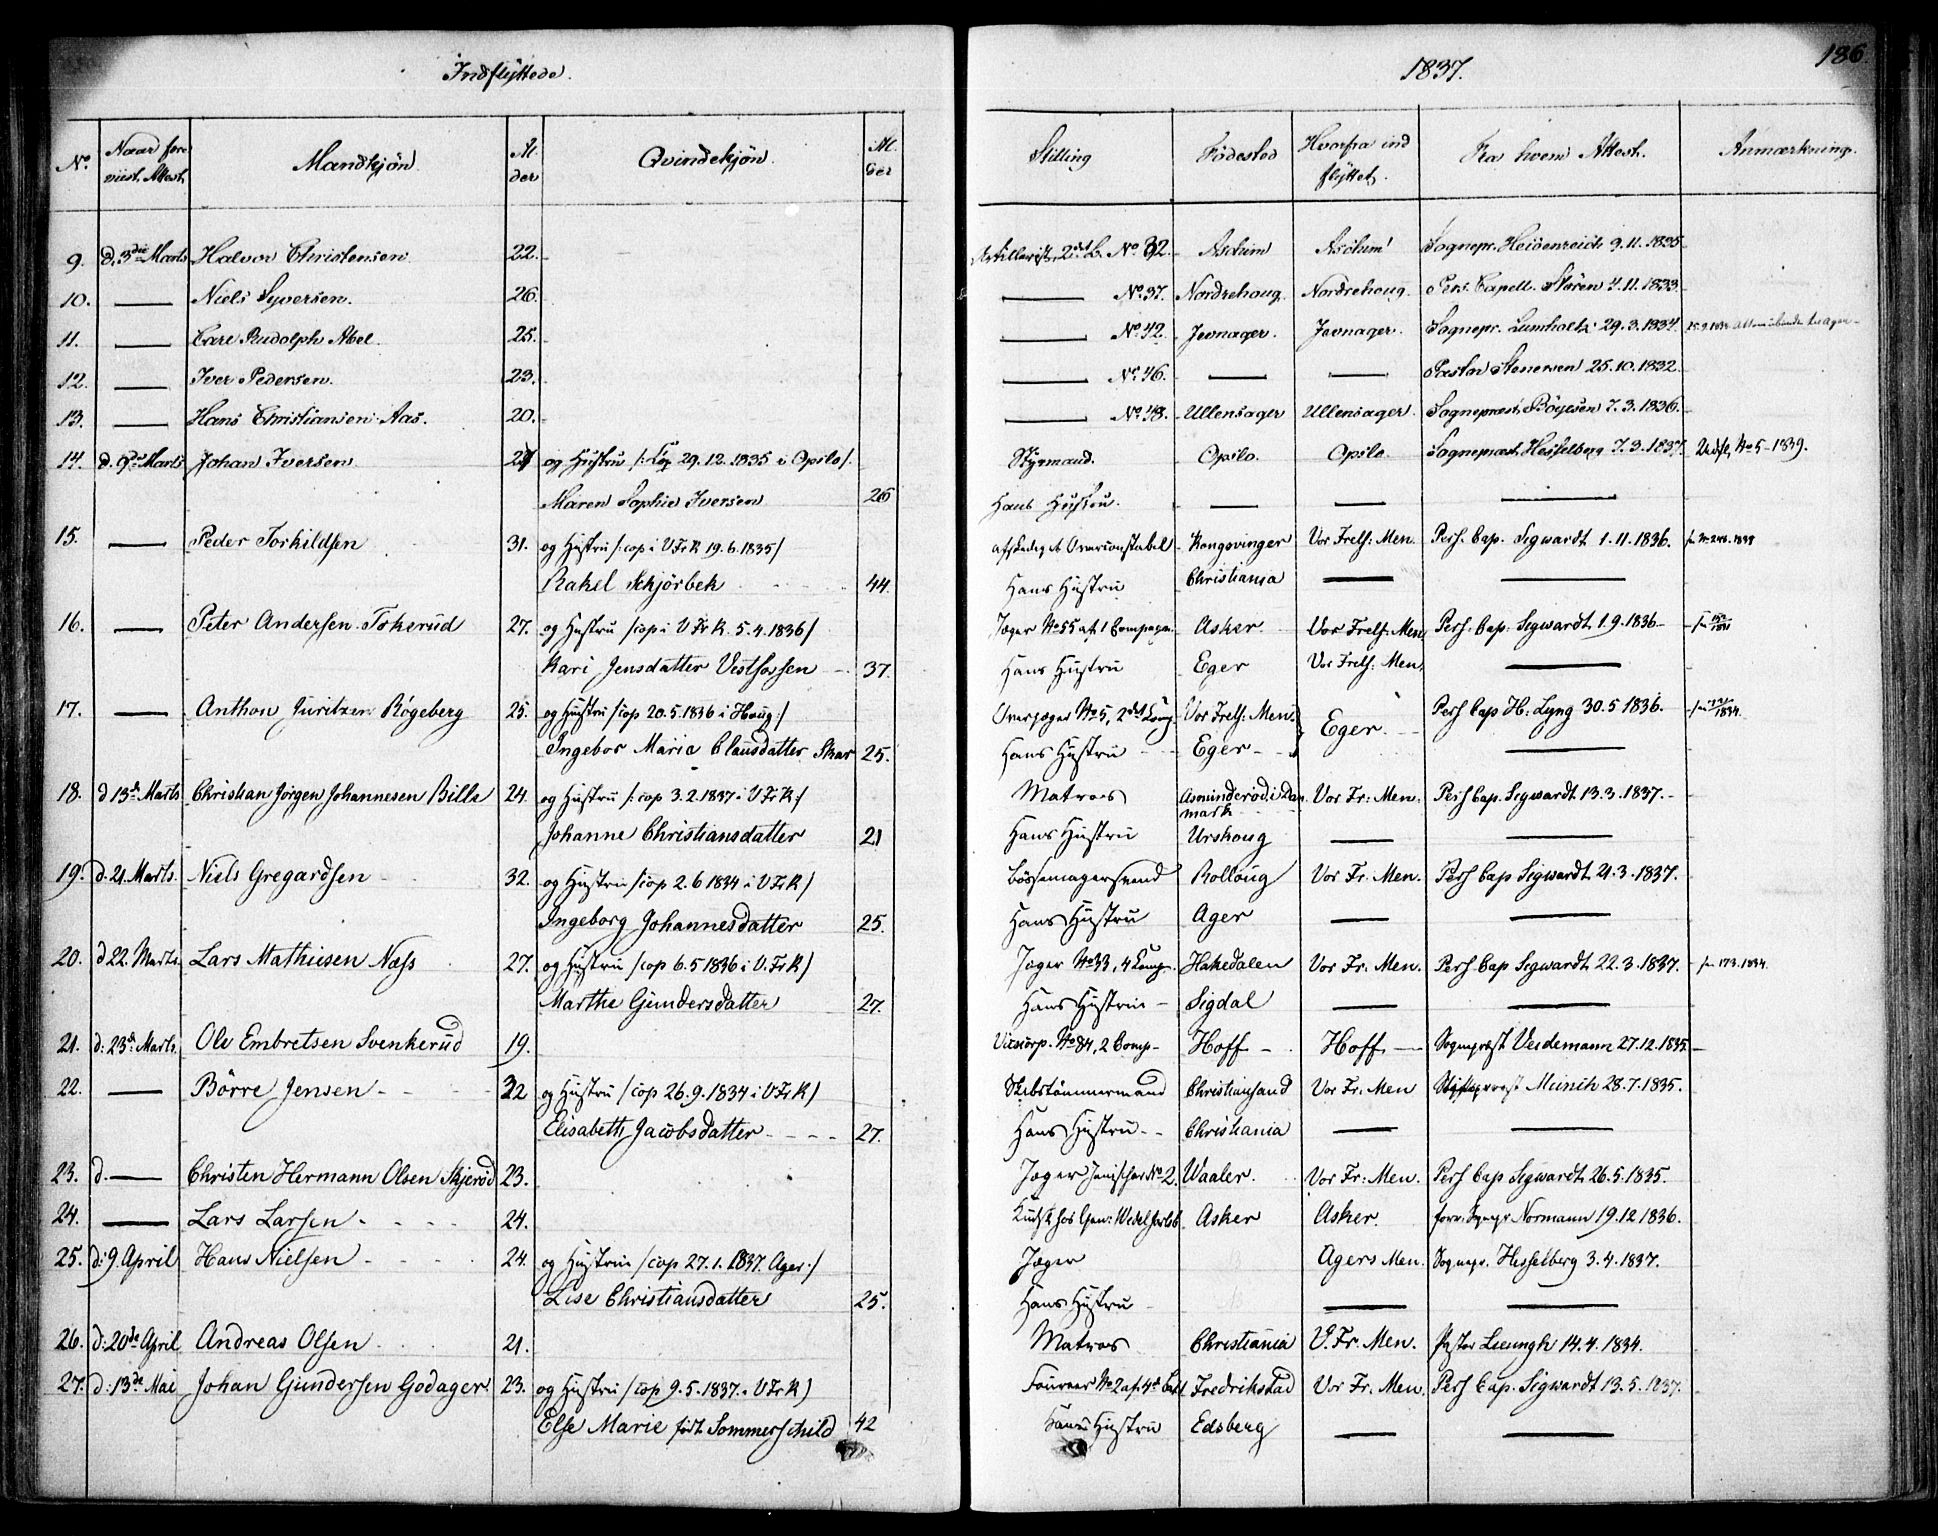 Indflyttede.
1837.
186.
No. Naar fore- viist. Attest. Mandkjøn. Al- der Qvindekjøn. Al- der Stilling Fødested Hvorfra ind flyttet. Fra hvem Attest. Anmærkning.
9. d. 3die Marts Halvor Christensen 22. Artillerist, 2det B. No 32. Aschim Aschim Sognepr. Heidenreich 9.11.1835
10. — Niels Syversen. 26. — No 37. Nordrehoug. Nordrehoug. Pers. Capell. Støren 4.11.1833
11. — Carl Rudolph Abel 25. — No 42. Jevnager. Jevnager. Sognepr. Lumholtz 29.3.1834.
12. — Iver Pedersen. 23. — No 46. — — Pastor Stenersen 25.10.1832.
13. — Hans Christiansen Aas. 20. — No 48. Ullensager Ullensager. Sognepræst Bøyesen 7.3.1836.
14. d. 9de Marts Johan Iversen og Hustru /: Cop 29.12.1835 i Opslo/. Styrmand. Opslo. Opslo. Sognepræst Hesselberg 7.3.1837. Udfl. No 5 - 1839.
Maren Sophie Iversen 26 Hans Hustru. — — —
15. — Peder Torkildsen 31. og Hustru /: cop i V Fr K 19.6.1835/ afskediget Overconstabel Kongsvinger Vor Frels: Men. Pers. Cap. Sigwardt 1.11.1836.
Rakel Skjörbek 44. Hans Hustru Christiania — —
16. — Peter Andersen Tokerud 27. og Hustru /cop i V Fr K. 5.4.1836/ Jæger No 55 af 1 Compagn. Asker. Vor Frels: Men. Pers. Cap. Sigwardt 1.9.1836
Kari Jensdatter Vestfossen 37. Hans Hustru Eger Vor Frels: Men. —
17. — Anthon Juritzen Bøgeberg 25. og Hustru /cop 20.5.1836 i Houg:/ Overjæger No 5, 2det Comp. Vor Frels: Men. Eger. Pers Cap H: Lyng 30.5.1836.
Ingebor Maria Clausdatter Skar 25. Hans Hustru Eger —
18. d 13de Marts Christian Jörgen Johannesen Bille 24. og Hustru /: cop 3.2.1837 i V Fr K:/ Matros Asminderöd i Dan- mark Vor Fr: Men. Pers Cap. Sigwardt 13.3.1837.
Johanne Christiansdatter 21 Hans Hustru Urskoug — —
19. d. 21 Marts. Niels Gregardsen 32. og Hustru /cop 2.6 1834 i V Fr K/ Bössemagersvend Rolloug Vor Fr. Men. Pers Cap Sigwardt 21.3.1837.
Ingeborg Johannesdatter 25. Hans Hustru Ager — —
20. d 22. Marts. Lars Mathiesen Næss 27. og Hustru /cop 6.5 1836 i V. Fr K/ Jæger No 33, 4 Comp. Hakedalen Vor Fr. Men. Pers. Cap Sigwardt 22.3.1837.
Marthe Gundersdatter 27. Hans Hustru Sigdal — —
21. d: 23de Marts. Ole Embretsen Svenkerud 19. Vicecorp. No 84, 2 Comp. Hoff Hoff Sognepræst Veidemann 27.12.1835
22. — Börre Jensen 32 og Hustru /cop 26.9.1834 i V Fr K/ Skibstömmermand Christiansand Vor Fr. Men Stiftsprovst Münch 28.7.1835.
Elisabeth Jacobsdatter 27. Hans Hustru Christiania — —
23. d. — Christen Hermann Olsen Skjeröd 23. Jæger No 2. Waaler. Vor Fr: Men. Pers Cap Sigwardt 26.5.1835.
24. — Lars Larsen 24. Kudsk hos Gen: Wedel Jarlsb Asker Asker. forr. Sognepr Normann 19.12 1836.
25. d: 9 April Hans Nielsen 24. og Hustru /cop 27.1.1837. Ager:/ Jæger Agers Men. Sognepr. Hesselberg 3.4.1837.
Lise Christiansdatter 25. Hans Hustru — —
26. d: 20de April Andreas Olsen 21. Matros Christiania V. Fr. Men. Pastor Lieungh 14.4.1834.
27. d: 13de Mai Johan Gundersen Godager 23. og Hustru /cop 9.5.1837. i V Fr K/ Foureer No 2 af 4de Fredrikstad Vor Fr. Men. Pers Cap. Sigwardt 13.5.1837.
Else Marie födt Sommerschild 42 Hans Hustru Edsberg — —